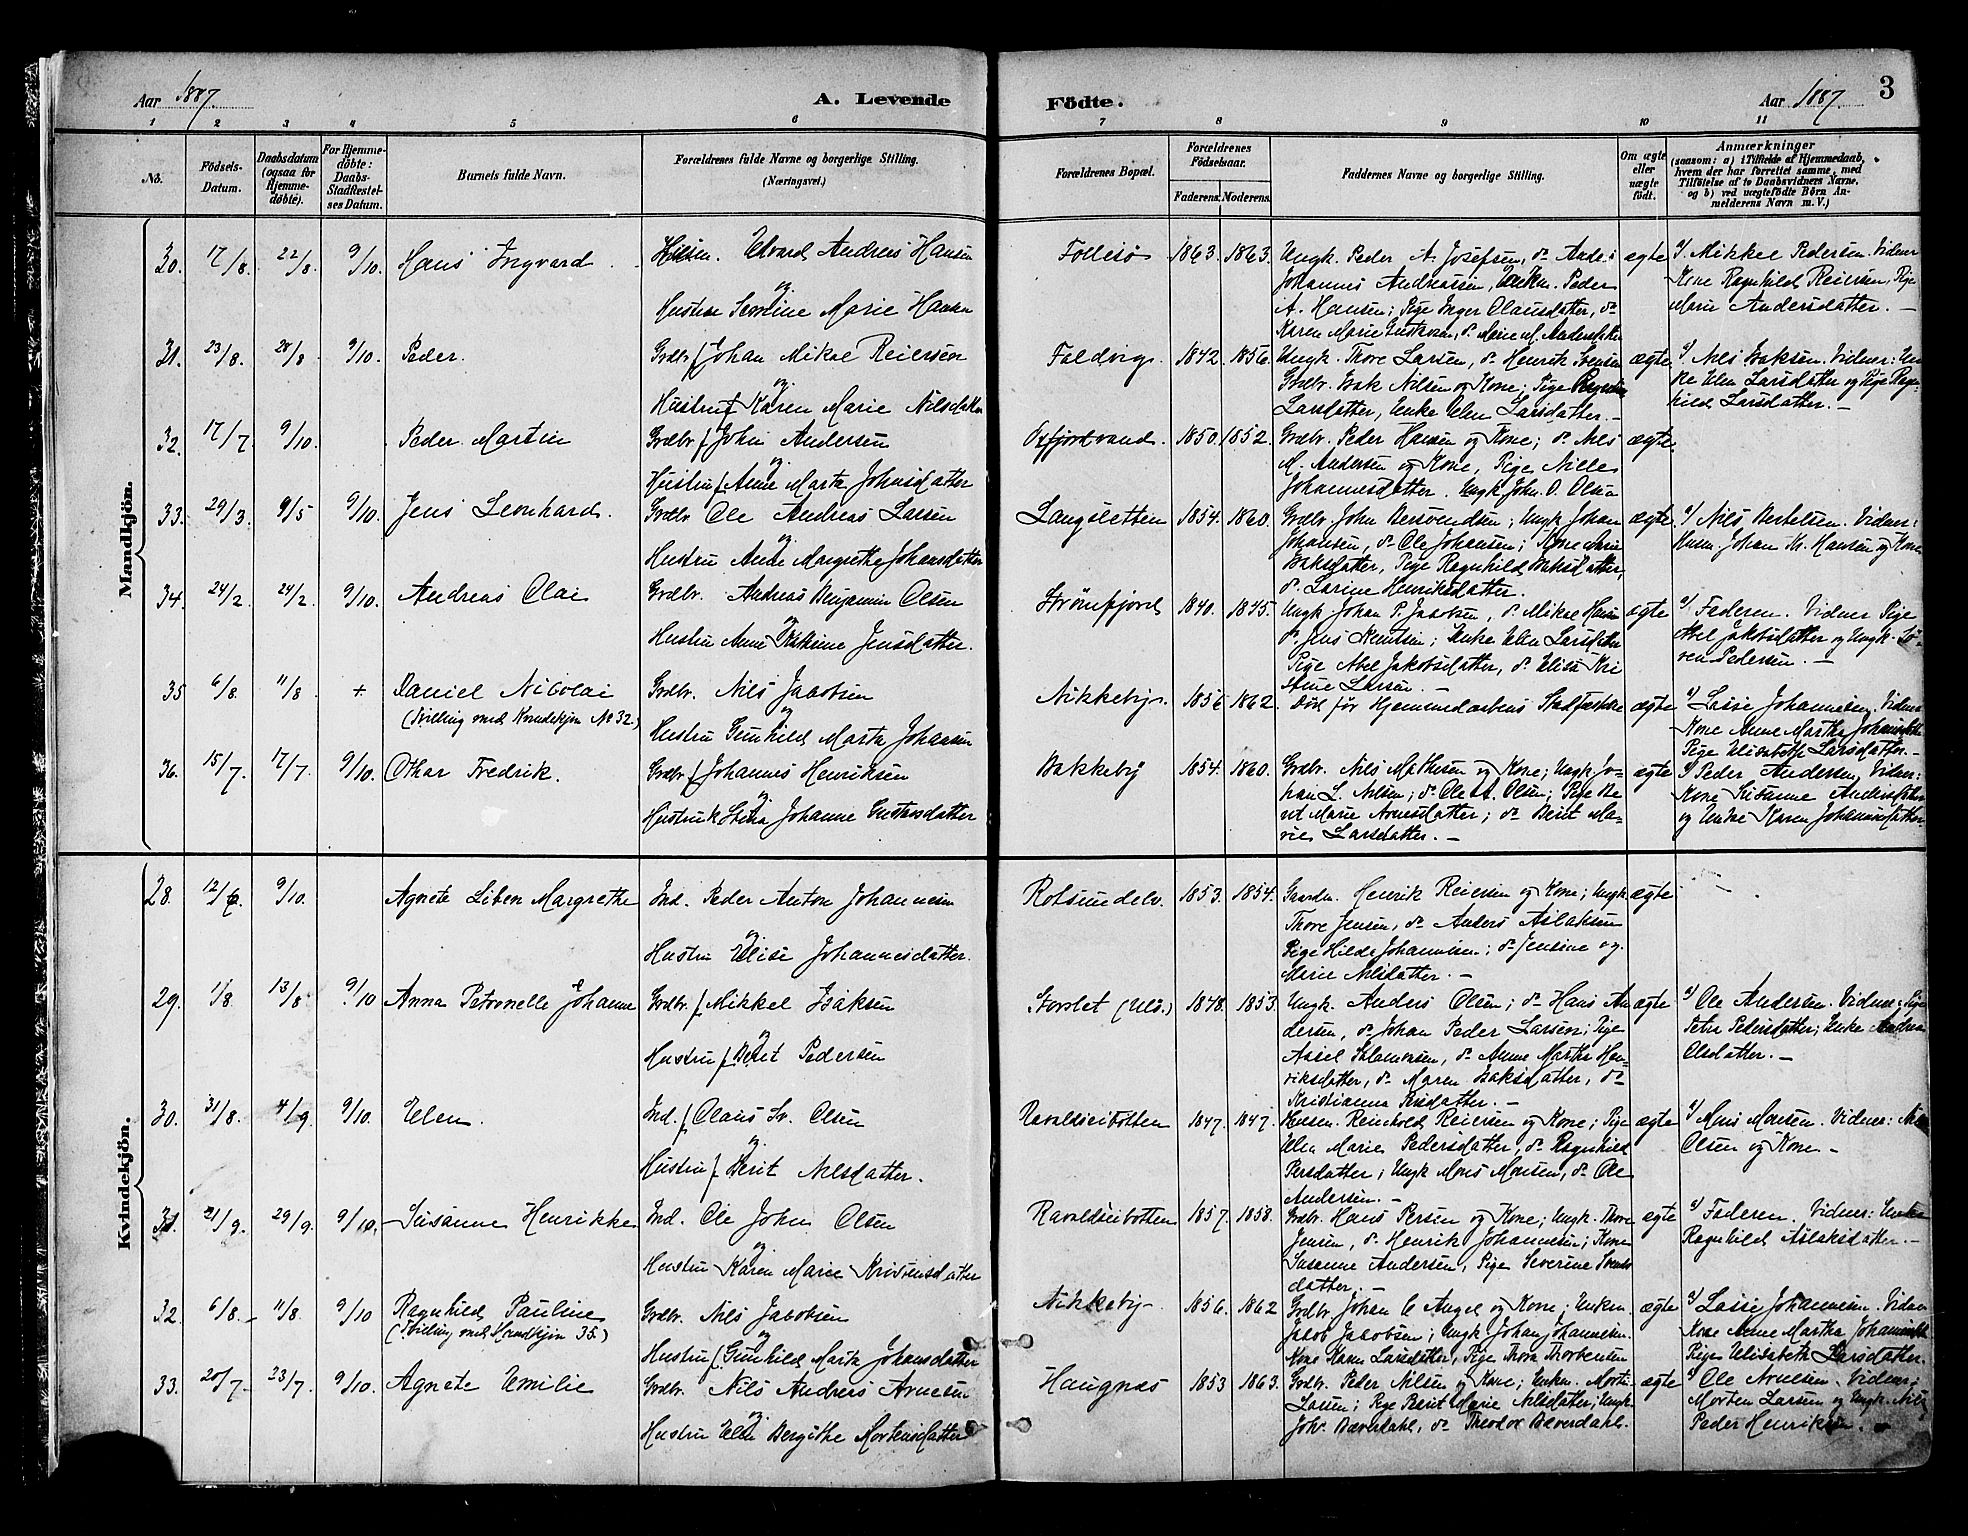 Aar 1887. A. Levende Födte. Aar 1887. 3
1 2 3 4 5 6 7 8 9 10 11
No.
Födsels-
Datum.
Daabsdatum
(ogsaa for
Hjemme-
döbte).
For Hjemme-
döbte:
Daabs-
Stadfæstel-
ses Datum.
Barnets fulde Navn.
Forældrenes fulde Navne og borgerlige Stilling.
(Næringsvei.)
Forældrenes Bopæl.
Forældrenes
Födselsaar.
Faderens. Moderens.
Faddernes Navne og borgerlige Stilling.
Om ægte
eller
uægte
födt.
Anmærkninger
(saasom: a) i Tilfælde af Hjemmedaab,
hvem der har forrettet samme, med
Tilföielse af to Daabsvidners Navne,
og b) ved uægtefödte Börn An-
melderens Navn m. V.)
Mandkjön.
30. 17/8. 22/8 9/10. Hans Ingvard
Edvard Andreas Hansen
og
Hustru Marie Hansen
1863. 1863.
Ungk. Peder A. Josefsen, do
Johannes Andreassen, Enkem. Peder
A. Hansen; Pige Inger Olausdatter, do
Karen Marie
ægte
a/ Mikkel Pedersen. Vidner
Kone Ragnhild Reiersen, Pige
Marie Andersdatter. —
31. 23/8. 28/8 9/10. Peder.
Grdbr. Johan Mikal Reiersen
og
Hustru Karen Marie Nilsdatter
Faldvig. 1842. 1856.
Ungk. Thore Larsen, do Henrik
Grdbr. Isak Nilsen og Kone; Pige
Larsdatter, Enke Elen Larsdatter. —
ægte
a/ Nils Isaksen. Vidner: En-
ke Elen Larsdatter og Pige Ragn-
hild Larsdatter. —
32. 17/7. 9/10. Peder Martin
Grdbr. John Andersen
og
Hustru Anne Marta Johnsdatter
1850. 1852.
Grdbr. Peder Hansen og Kone; do Nils
M. Andersen og Kone, Pige Nille
Johannesdatter. Ungk. John O. Olsen
ægte.
33. 29/3. 9/5 9/10. Jens Leonhard.
Grdbr Ole Andreas Larsen
og
Hustru Ane Margrethe Johansdatter
Langsletten 1854. 1860.
Grdbr. John Bersvendsen; Ungk Johan
Johansen, do Ole Johansen; Kone
Isaksdatter, Pige Ragnhild Isaksdatter,
do Larine Henriksdatter.
ægte
a/ Nils Bertelsen. Vidner:
Husm. Johan Kr. Hansen og Kone
34. 24/2. 24/2. 9/10. Andreas Olai
Grdbr. Andreas Benjamin Olsen
og
Hustru Anne Kathrine Jensdatter.
Strømfjord 1840. 1845.
Ungk. Johan P. Jacobsen, do Mikal Hansen
do Jens Knutsen; Enke Elen Larsdatter
Pige Abel Jakobsdatter, do Elisa Kri-
stine Larsen. —
ægte
a/ Faderen. Vidner Pige
Abel Jakobsdatter og Ungk. Sö-
ren Pedersen. —
35 6/8. 11/8 + Daniel Nicolai
(Tvilling med Kvindekjøn No 32)
Grdbr. Nils Jacobsen
og
Hustru Gunhild Marta Johansen
Nikkeby. 1856 1862.
Død før Hjemmedaabens
ægte
a/ Lasse Johannesen. Vidner
Kone Anne Martha Johannesdatter
Pige Elisabeth Larsdatter. —
36. 15/7. 17/7. 9/10. Othar Fredrik.
Grdbr Johannes Henriksen
og
Hustru Stina Johanne Gustavsdatter
Bakkeby 1854. 1860.
Grdbr. Nils Mathisen og Kone; Ungk. Jo-
han L. Nilsen; do Ole A. Olsen; Pige Be-
rit Marie Arnesdatter; do Berit Ma-
rie Larsdatter. —
ægte
a/ Peder Andersen, Vidner:
Kone Susanne Andersdatter
og Enke Karen Johannesdatter.
Kvindekjön.
28. 12/6. 9/10. Agnete Liben Margrethe
Ind. Peder Anton Johannesen
og
Hustru Elise Johannesdatter.
Rotsundelv. 1853. 1854.
Gaardm. Henrik Reiersen og Kone; Ungk.
Thore Jensen, do Anders Aslaksen
Pige Hilda Johannsen; do Jensine og
Marie Nilsdatter. —
ægte
29. 1/8. 13/8. 9/10 Anna Petronelle Johanne
Grdbr. Mikkel Isaksen
og
Hustru Berit Pedersen
Storslet (Uls.) 1848. 1853.
Ungk. Anders Olsen; do Hans An-
dersen, do Johan Peder Larsen; Pige
Salamonsen, do Anne Marthe Hen-
riksdatter, do Maren Isaksdatter, do
Kristianna
ægte
a/ Ole Andersen. Vidner: Pige
Pedersdatter; Enke
Olsdatter. —
30. 31/8. 4/9. 9/10. Elen.
Ind. Olaus Sv. Olsen
og
Hustru Berit Nilsdatter.
Ravaldseibotten 1847. 1847.
Husm. Reinhold Reiersen og Kone; Pige
Elen Marie Pedersdatter, do Ragnhild
Persdatter; Ungk Mons Monsen, do Ole
Andersen. —
ægte
a/ Mons Monsen. Vidner:
Olsen og Kone —
31. 21/9. 29/9. 9/10. Susanne Henrikke
Ind. Ole John Olsen
og
Hustru Karen Marie
Ravaldseibotten 1857. 1858.
Grdbr. Hans Persen og Kone; Ungk. Thore
Jensen, do Henrik Johannesen; Kone
Susanne Andersen, Pige Severine
datter. —
ægte
a/ Faderen. Vidner: Enke
Ragnhild Aslaksdatter. —
32. 6/8. 11/8. 9/10 Ragnhild Pauline
(Tvilling med Mandkjøn 35.)
Grdbr. Nils Jacobsen
og
Hustru Gunhild Marta Johansdatter
Nikkeby. 1856. 1862
Grdbr Johan C Angel og Kone; Enkem.
Jacob Jacobsen; Ungk Johan Johannesen.
Kone Karen Larsdatter, Pige Thora Thorbersen
ægte
a/ Lasse Johannesen. Vidner
Kone Anne Martha Johannesdt.
Pige Elisabeth Larsdatter.
33. 20/7. 23/7. 9/10. Agnete Emilie
Grdbr. Nils Andreas Arnesen
og
Hustru Elen Bergithe Mortensdatter
Haugnæs 1853 1863.
Grdbr. Peder Nilsen og Kone; Enkem. Morten
Larsen; Pige Berit Marie Nilsdatter; Ungk.
Joh. Bæverdahl, do Theodor Bæverdahl.
ægte
a/ Ole Arnesen. Vidner:
Morten Larsen og Ungk. Nils
Peder Henriksen. —